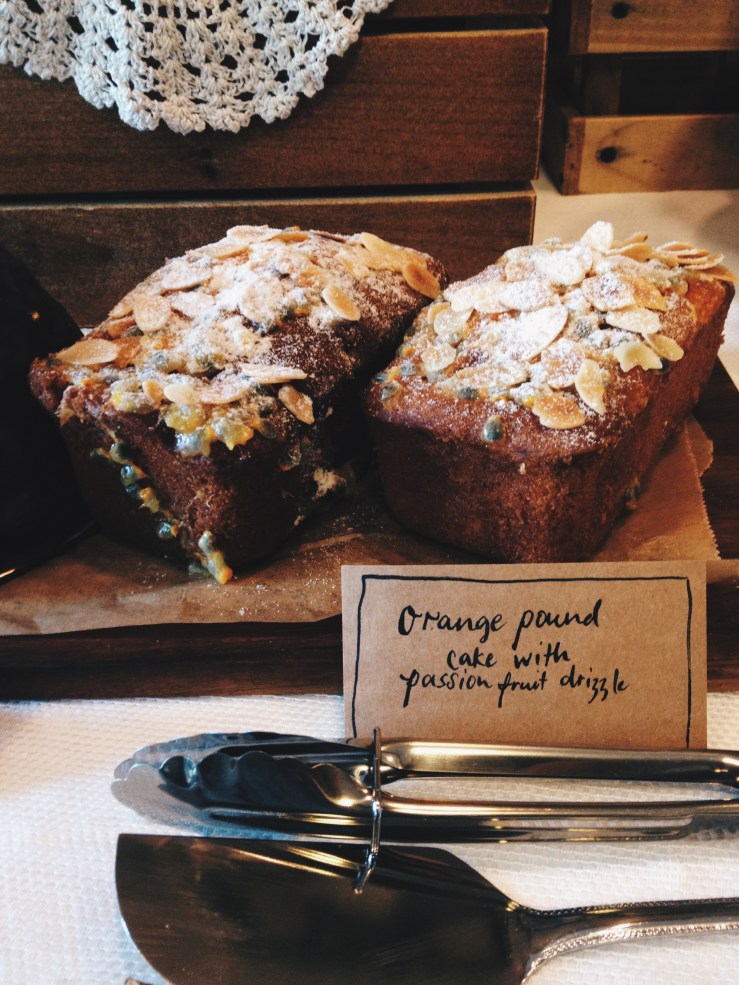 Orange pound
cake with
passion fruit drizzle